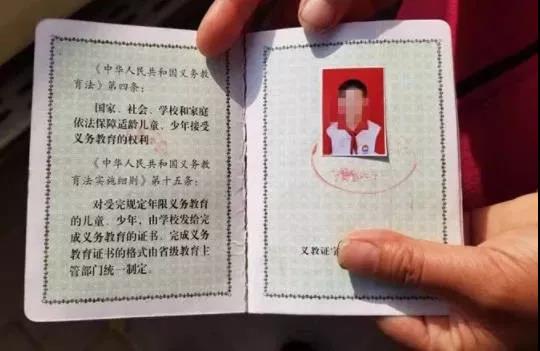 《中华人民共和国义务教
育法》第四条:
国家、社会、学校和家庭
依法保障适龄儿童、少年接受
义务教育的权利。
《中华人民共和国义务教
育法实施细则》第十五条:
对受完规定年限义务教育
的儿童、少年,由学校发给完
成义务教育的证书。完成义务
教育证书的格式由省级教育主
管部门统一制定。
义教证字